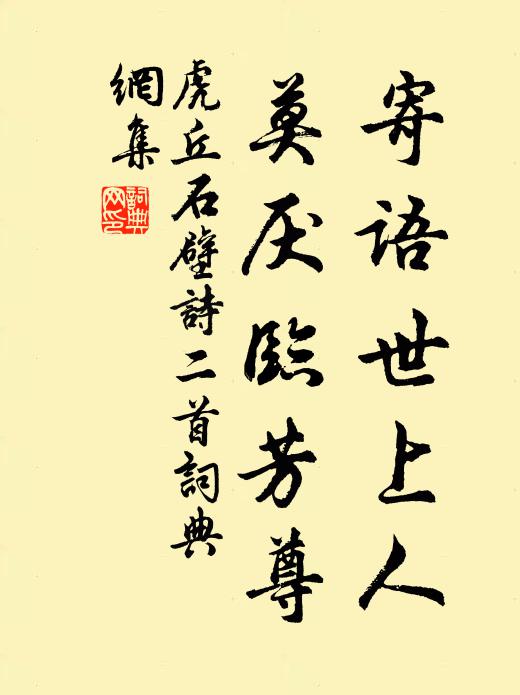 寄語世上人
莫厌臨芳尊
虎丘石壁詩二首詞典
網集
詞典
网印